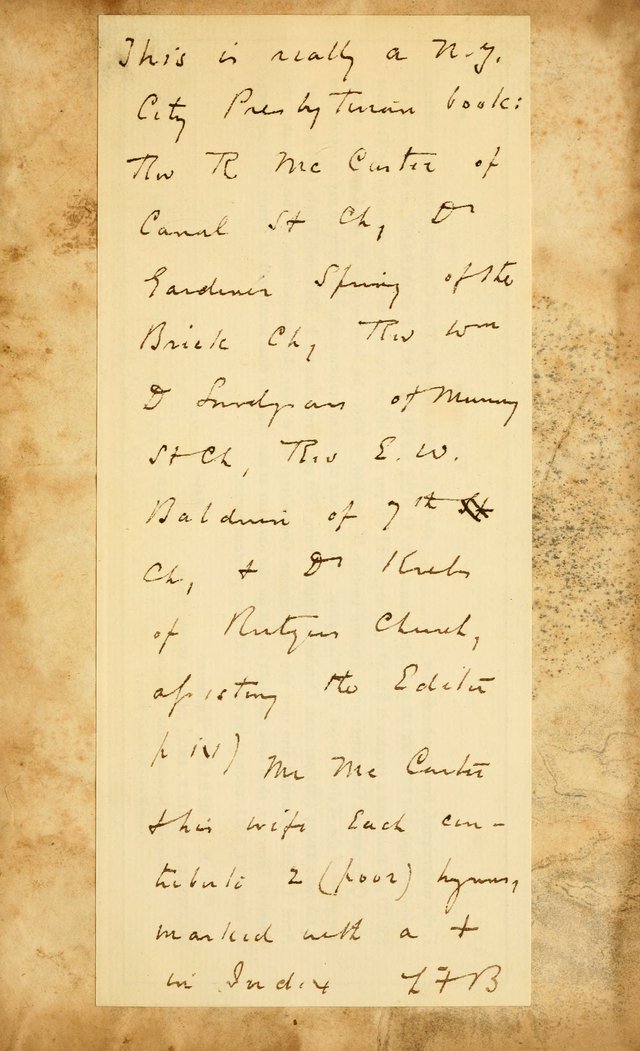 This is really a N.Y.
City Presbyterian book:
Rev R Mc Cartee of
Canal St Ch, Dr
Gardiner Spring of the
Brick Ch, Rev Wm
D Snodgrass of Murray
St Ch, Rev E. W.
Baldwin of 7th St
Ch, + Dr Krebs
of Rutgers Church,
assisting the Editor
p iv) Mr Mc Cartee
+ his wife Each con-
tribute 2 (poor) hymns,
marked with a +
in Index L F B